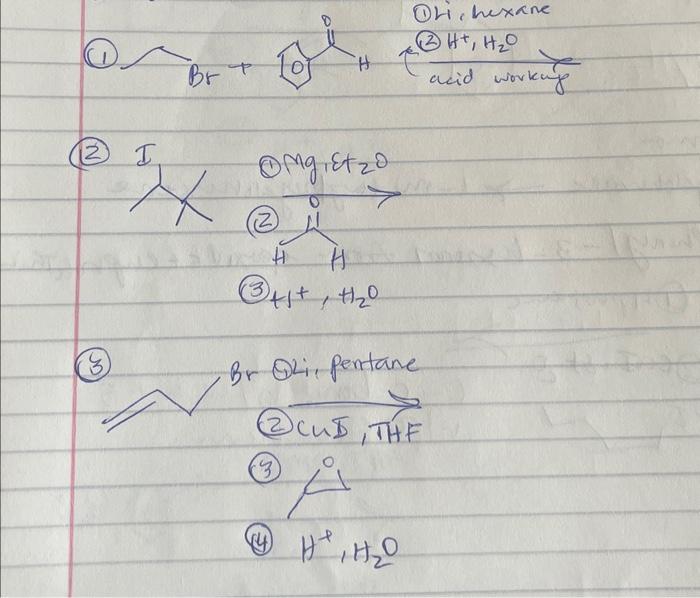 ① Li, hexane
O
② H+, H2O
① Br + O H
acid workup
② I ① Mg, Et2O
O
②
H H
③ H+, H2O
③ Br ① Li, pentane
② CuI, THF
③ O
④ H+, H2O